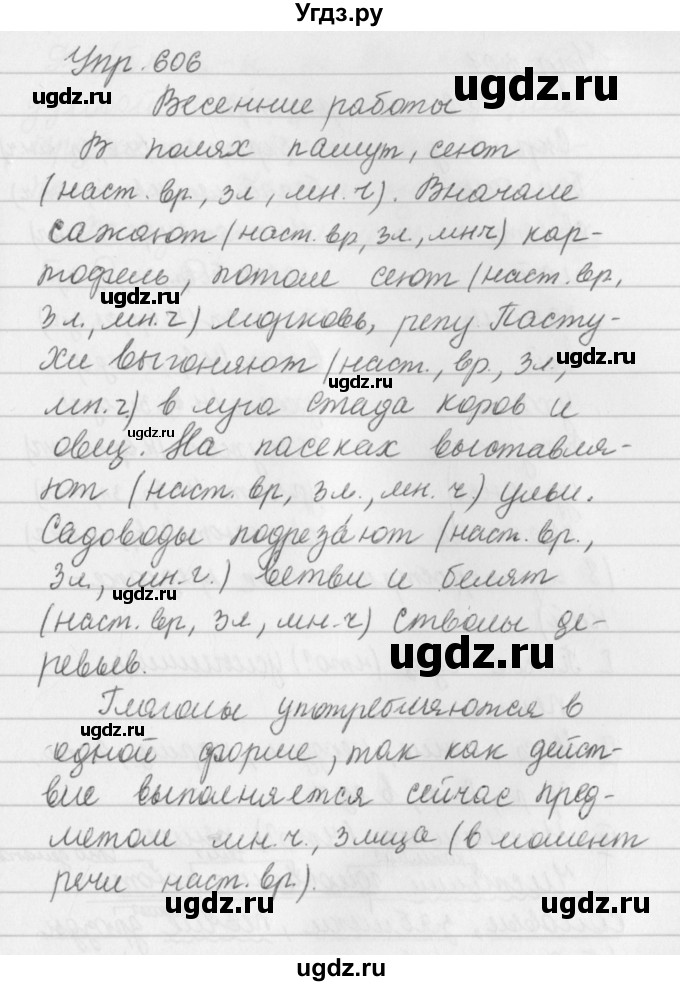 Угдз.ру
Упр. 606
ugdz.ru
ugdz.ru
Весенние работы
В полях пашут, сеют
(наст. вр., 3л, мн. ч). Вначале
сажают (наст. вр, 3л., мнч) кар-
ugdz.ru
тофель, потом сеют (наст. вр,
ugdz.ru
3л., мн. ч) морковь, репу Пасту-
хи выгоняют (наст., вр., 3л.,
ugdz.ru
ugdz.ru
мн. ч.) в луга стада коров и
ugdz.ru
овец. На пасеках выставля-
ют (наст. вр, 3л., мн. ч.) ульи.
Садоводы подреза́ют (наст. вр.,
3л., мн. ч.) ветви и белят
ugdz.ru
(наст. вр, 3л, мн. ч) стволы де-
ugdz.ru
ревьев.
Глаголы употребляются в
ugdz.ru
одной форме, так как дейст-
вие выполняется сейчас пред-
метом мн. ч., 3 лица (в момент
речи наст. вр).
ugdz.ru
ugdz.ru
ugdz.ru